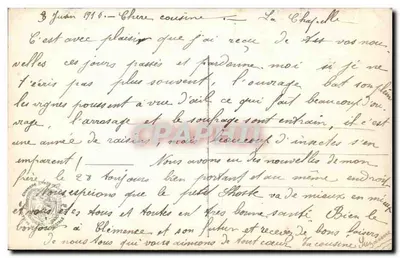 3 Juin 1916 - Chère cousine - La Chapelle
C'est avec plaisir que j'ai reçu de tes vos nou
velles ces jours passés et pardonne moi si je ne
t'écris pas plus souvent, l'ouvrage bat son plein
les vignes poussent à vue d'œil ce qui fait beaucoup d'ou
vrage, l'arrosage et le soufrage sont entrain, il c'est
une année de raisins, mais beaucoup d'insectes s'en
emparent! Nous avons eu des nouvelles de mon
père le 28 toujours bien portant et au même endroit
Nous espérons que le petit va de mieux en mieux
et vous êtes tous et toutes en très bonne santé. Bien le
bonjour à Clémence et son futur et recevez de bons baisers
de nous tous qui vous aimons de tout cœur. Ta cousine
PRECIOUS